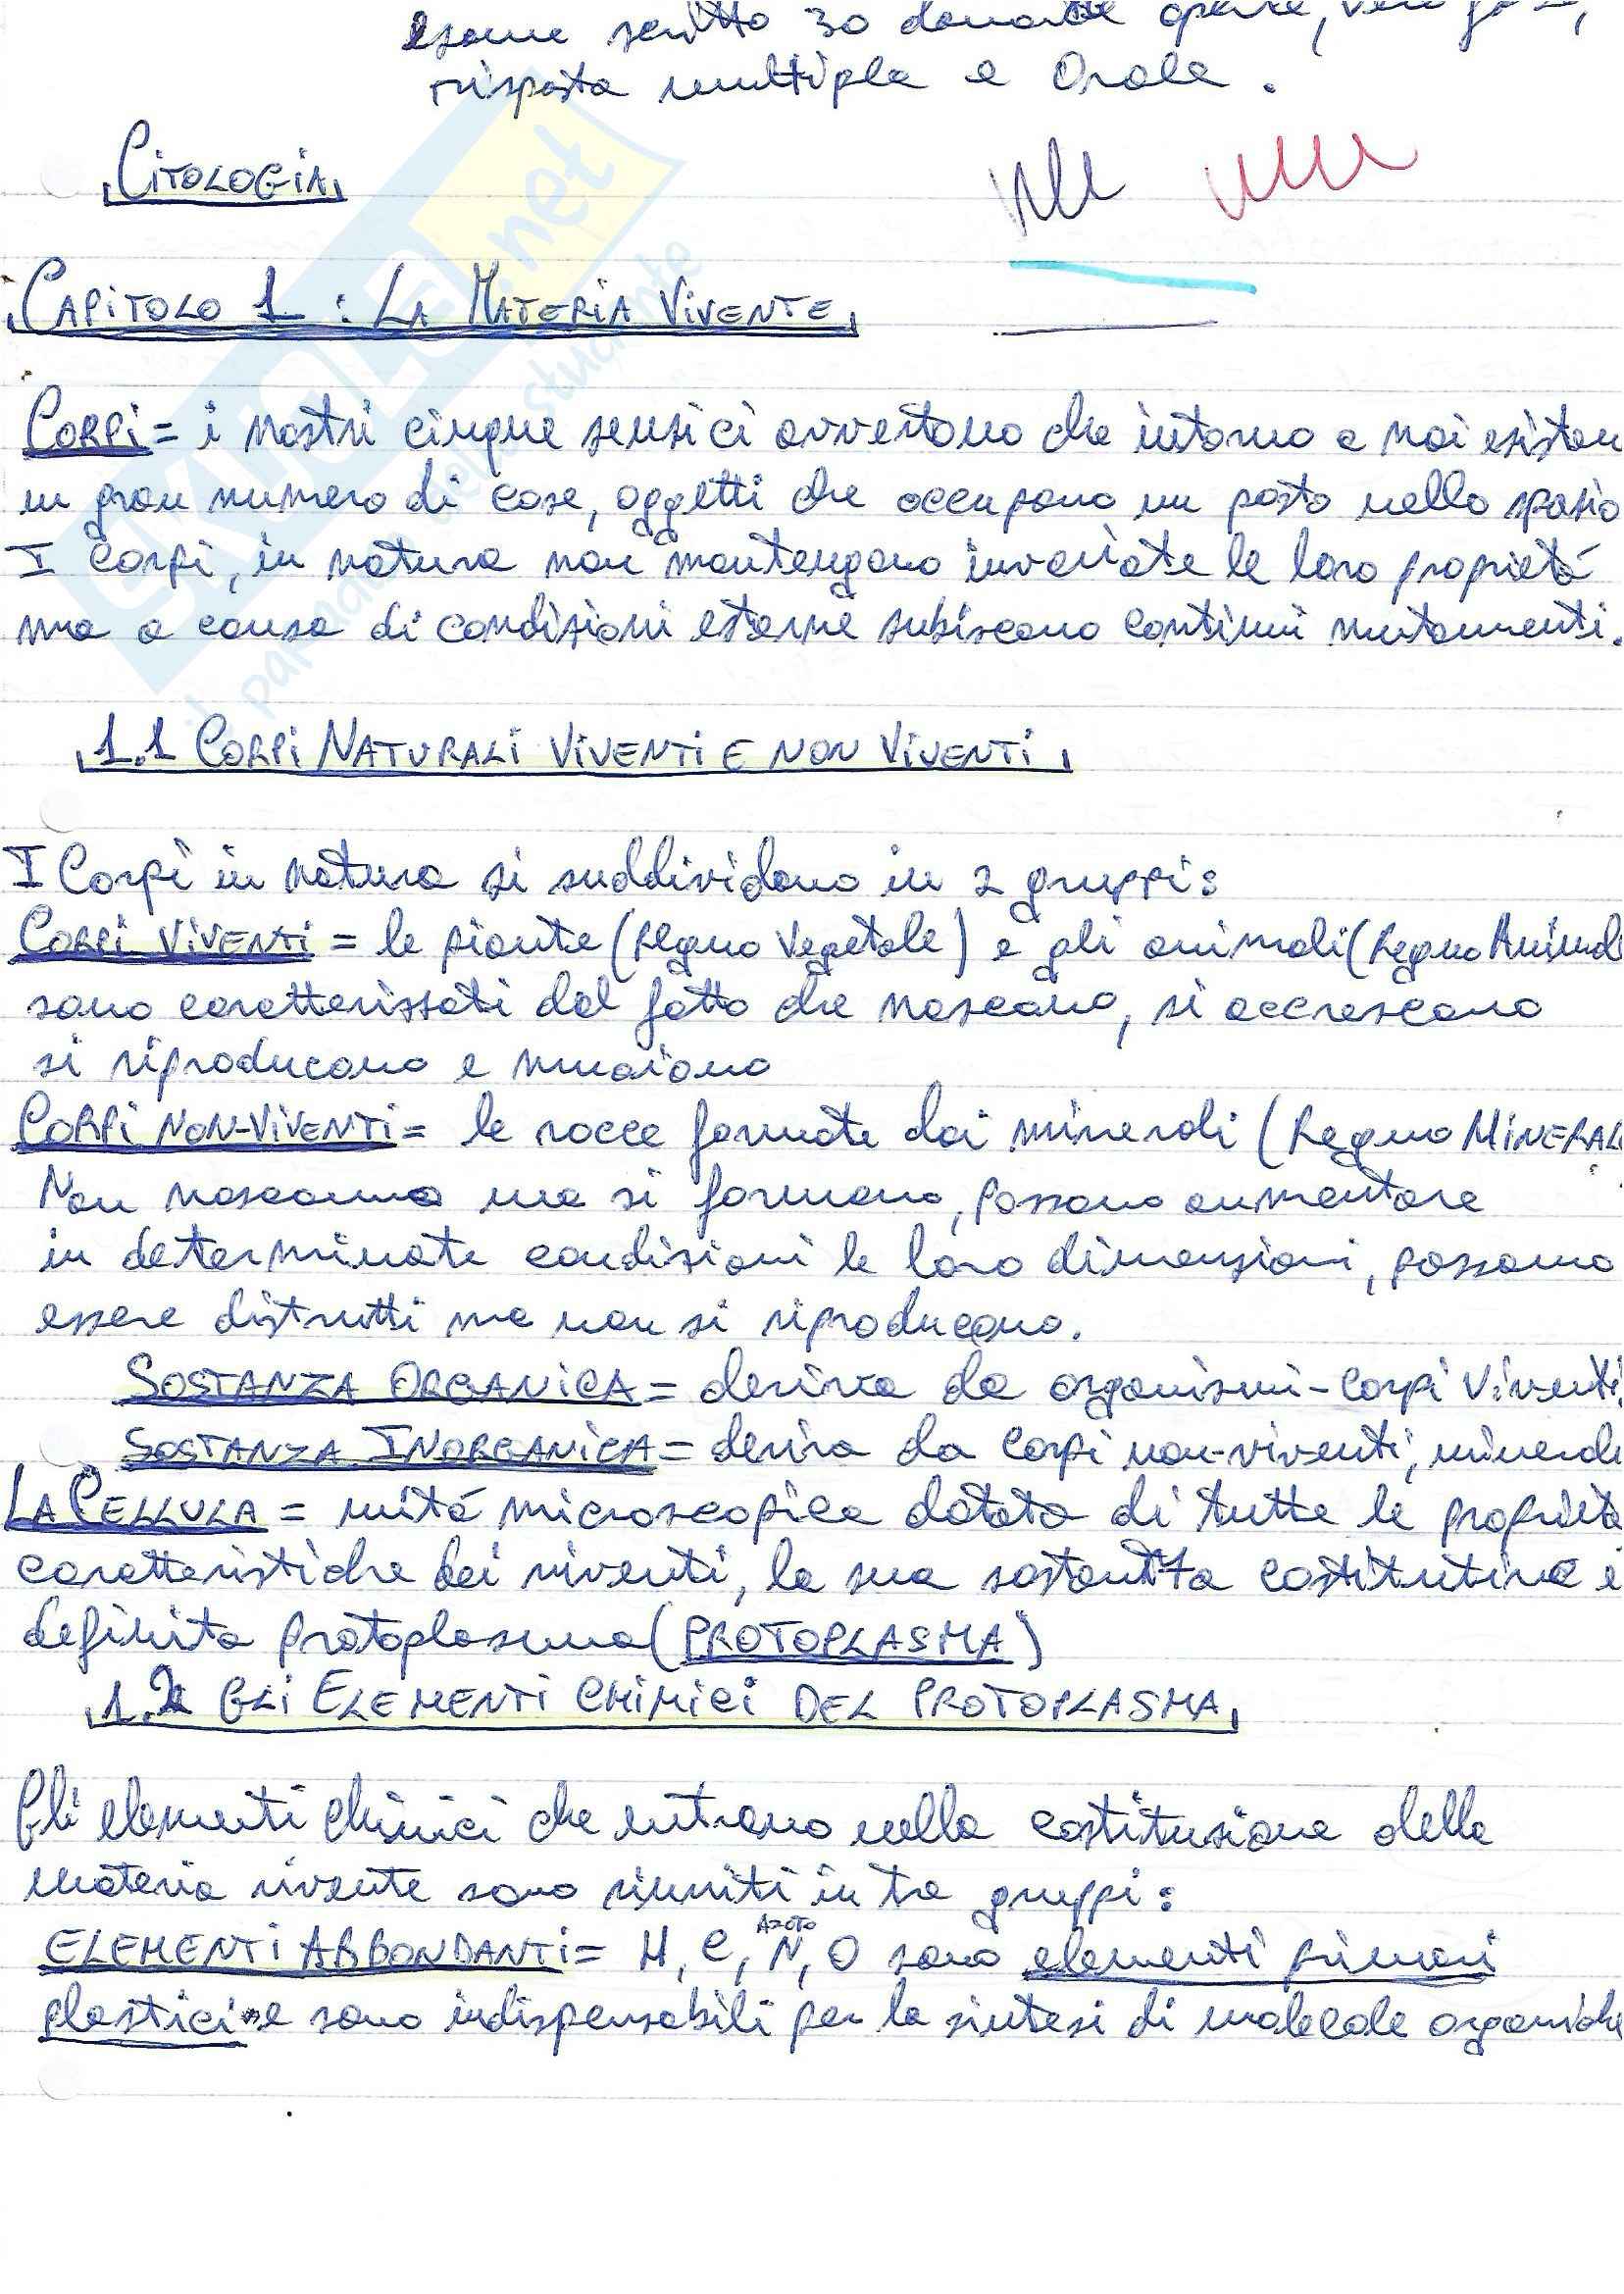 esame scritto 30 domande aperte, vero falso,
risposta multipla e Orale.
CITOLOGIA
CAPITOLO 1: LA MATERIA VIVENTE
CORPI = i nostri cinque sensi ci avvertono che intorno a noi esiston
un gran numero di cose, oggetti che occupano un posto nello spazio
I corpi, in natura non mantengono invariate le loro proprietá
ma a causa di condizioni esterne subiscono continui mutamenti.
1.1 CORPI NATURALI VIVENTI E NON VIVENTI
I Corpi in natura si suddividono in 2 gruppi:
CORPI VIVENTI = le piante (Regno Vegetale) e gli animali (Regno Animale
sono caratterizzati dal fatto che nascono, si accrescono
si riproducono e muoiono
CORPI NON-VIVENTI = le rocce formate dai minerali (Regno MINERALE
Non nascono ma si formano, possono aumentare
in determinate condizioni le loro dimensioni, possono
essere distrutti ma non si riproducono.
SOSTANZA ORGANICA = deriva da organismi-corpi viventi.
SOSTANZA INORGANICA = deriva da corpi non-viventi, minerali
LA CELLULA = unitá microscopica dotata di tutte le proprietà
caratteristiche dei viventi, la sua sostanza costitutiva è
definita protoplasma (PROTOPLASMA)
1.2 GLI ELEMENTI CHIMICI DEL PROTOPLASMA
Gli elementi chimici che entrano nella costituzione della
materia vivente sono riuniti in tre gruppi:
AZOTO
ELEMENTI ABBONDANTI = H, C, N, O sono elementi primari
plastici e sono indispensabili per la sintesi di molecole organiche
SKUOLA.net
il paradiso dello studente